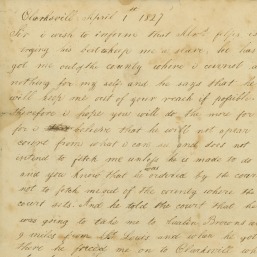 Clarksvill, April 1st 1827
Sir I wish to inform that
trying his best keep me a slave, he has
got me out of the county where I cannot do
nothing for my self and he says that he
will keep me out of your reach if possible
therefore I hope you will do the more for
for I believe that he will not apear
cource from what I can see and does not
intend to fitch me unless he is made to do
and you know that he was ordered by the court
not to fitch me out of the county where the
court sets. And he told the court that he
was going to take me to Browns
9 miles from St. Louis and when he got
there he forced me on to Clarksville